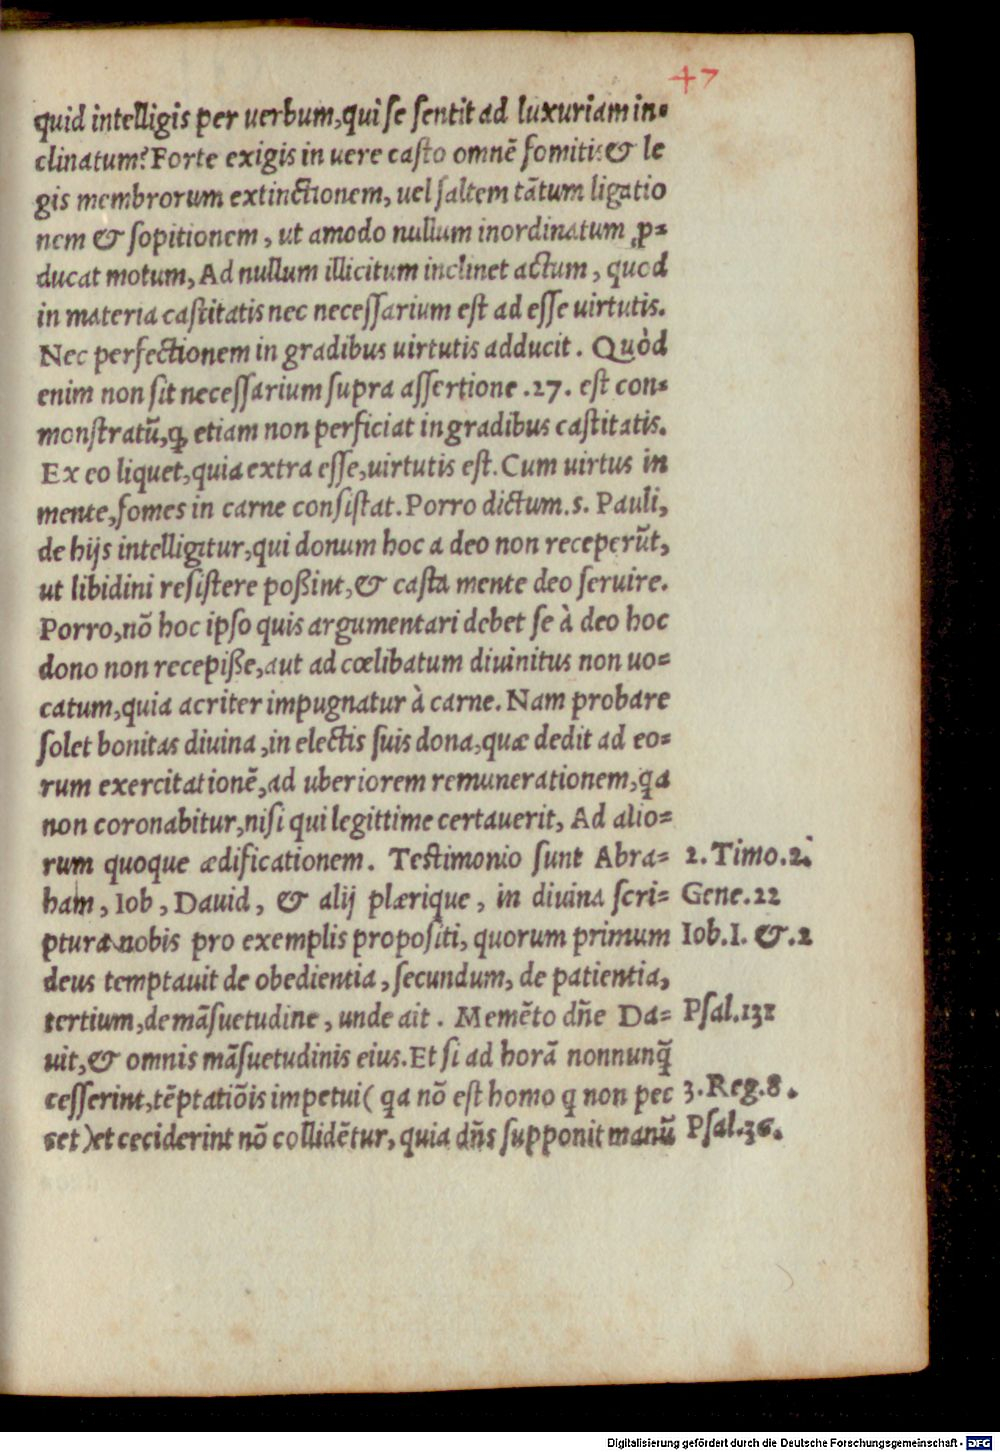 47
quid intelligis per uerbum,qui se sentit ad luxuriam in-
clinatum? Forte exigis in uere casto omnē fomitis & le
gis membrorum extinctionem, uel saltem tātum ligatio
nem & sopitionem, ut amodo nullum inordinatum ꝓ-
ducat motum, Ad nullum illicitum inclinet actum, quod
in materia castitatis nec necessarium est ad esse uirtutis.
Nec perfectionem in gradibus uirtutis adducit. Quòd
enim non sit necessarium supra assertione .27. est con-
monstratū,ꝙ etiam non perficiat in gradibus castitatis.
Ex eo liquet,quia extra esse,uirtutis est. Cum uirtus in
mente,fomes in carne consistat. Porro dictum .s. Pauli,
de hijs intelligitur,qui donum hoc a deo non receperūt,
ut libidini resistere poßint,& casta mente deo seruire.
Porro,nō hoc ipso quis argumentari debet se à deo hoc
dono non recepiße,aut ad cœlibatum diuinitus non uo-
catum,quia acriter impugnatur à carne. Nam probare
solet bonitas diuina,in electis suis dona,quæ dedit ad eo-
rum exercitationē,ad uberiorem remunerationem,qa
non coronabitur,nisi qui legittime certauerit, Ad alio-
rum quoque ædificationem. Testimonio sunt Abra- 2. Timo.2.
ham, Iob, Dauid, & alij plærique, in diuina scri- Gene.22
ptura nobis pro exemplis propositi, quorum primum Iob.1. &.2
deus temptauit de obedientia, secundum, de patientia,
tertium,de māsuetudine, unde ait. Memēto dñe Da- Psal.131
uit,& omnis māsuetudinis eius. Et si ad horā nonnunq̄
cesserint,tēptatiōis impetui ( qa nō est homo q non pec 3. Reg.8.
cet) et ceciderint nō collidētur, quia dñs supponit manū Psal.36.
Digitalisierung gefördert durch die Deutsche Forschungsgemeinschaft - DFG